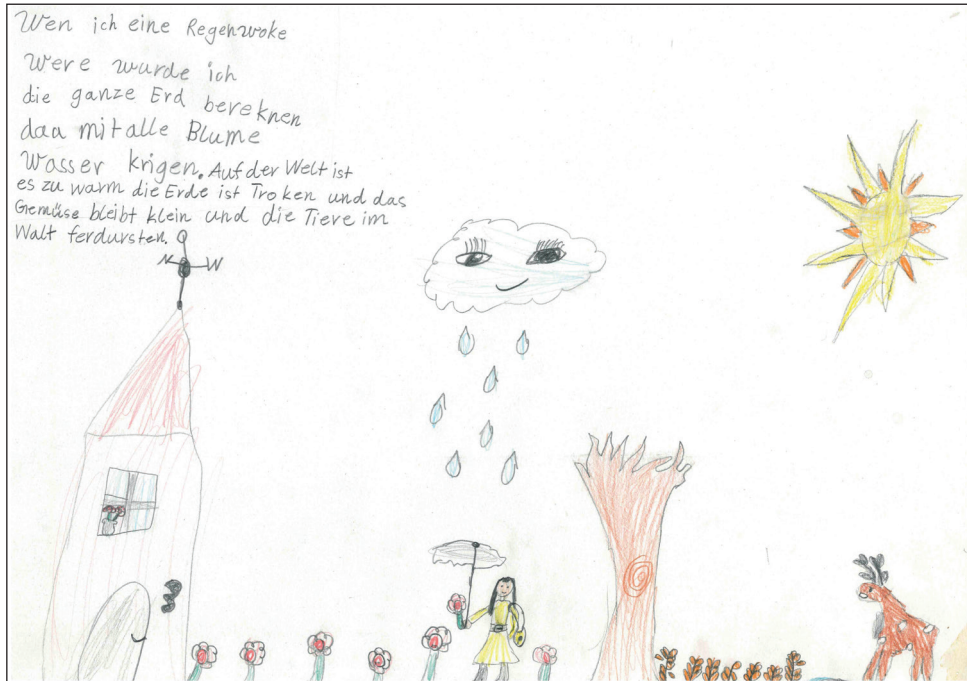 Wen ich eine Regenwoke
Were wurde ich
die ganze Erd bereknen
daa mit alle Blume
Wasser krigen. Auf der Welt ist
es zu warm die Erde ist Troken und das
Gemüse bleibt klein und die Tiere im
Walt ferdursten.
N W